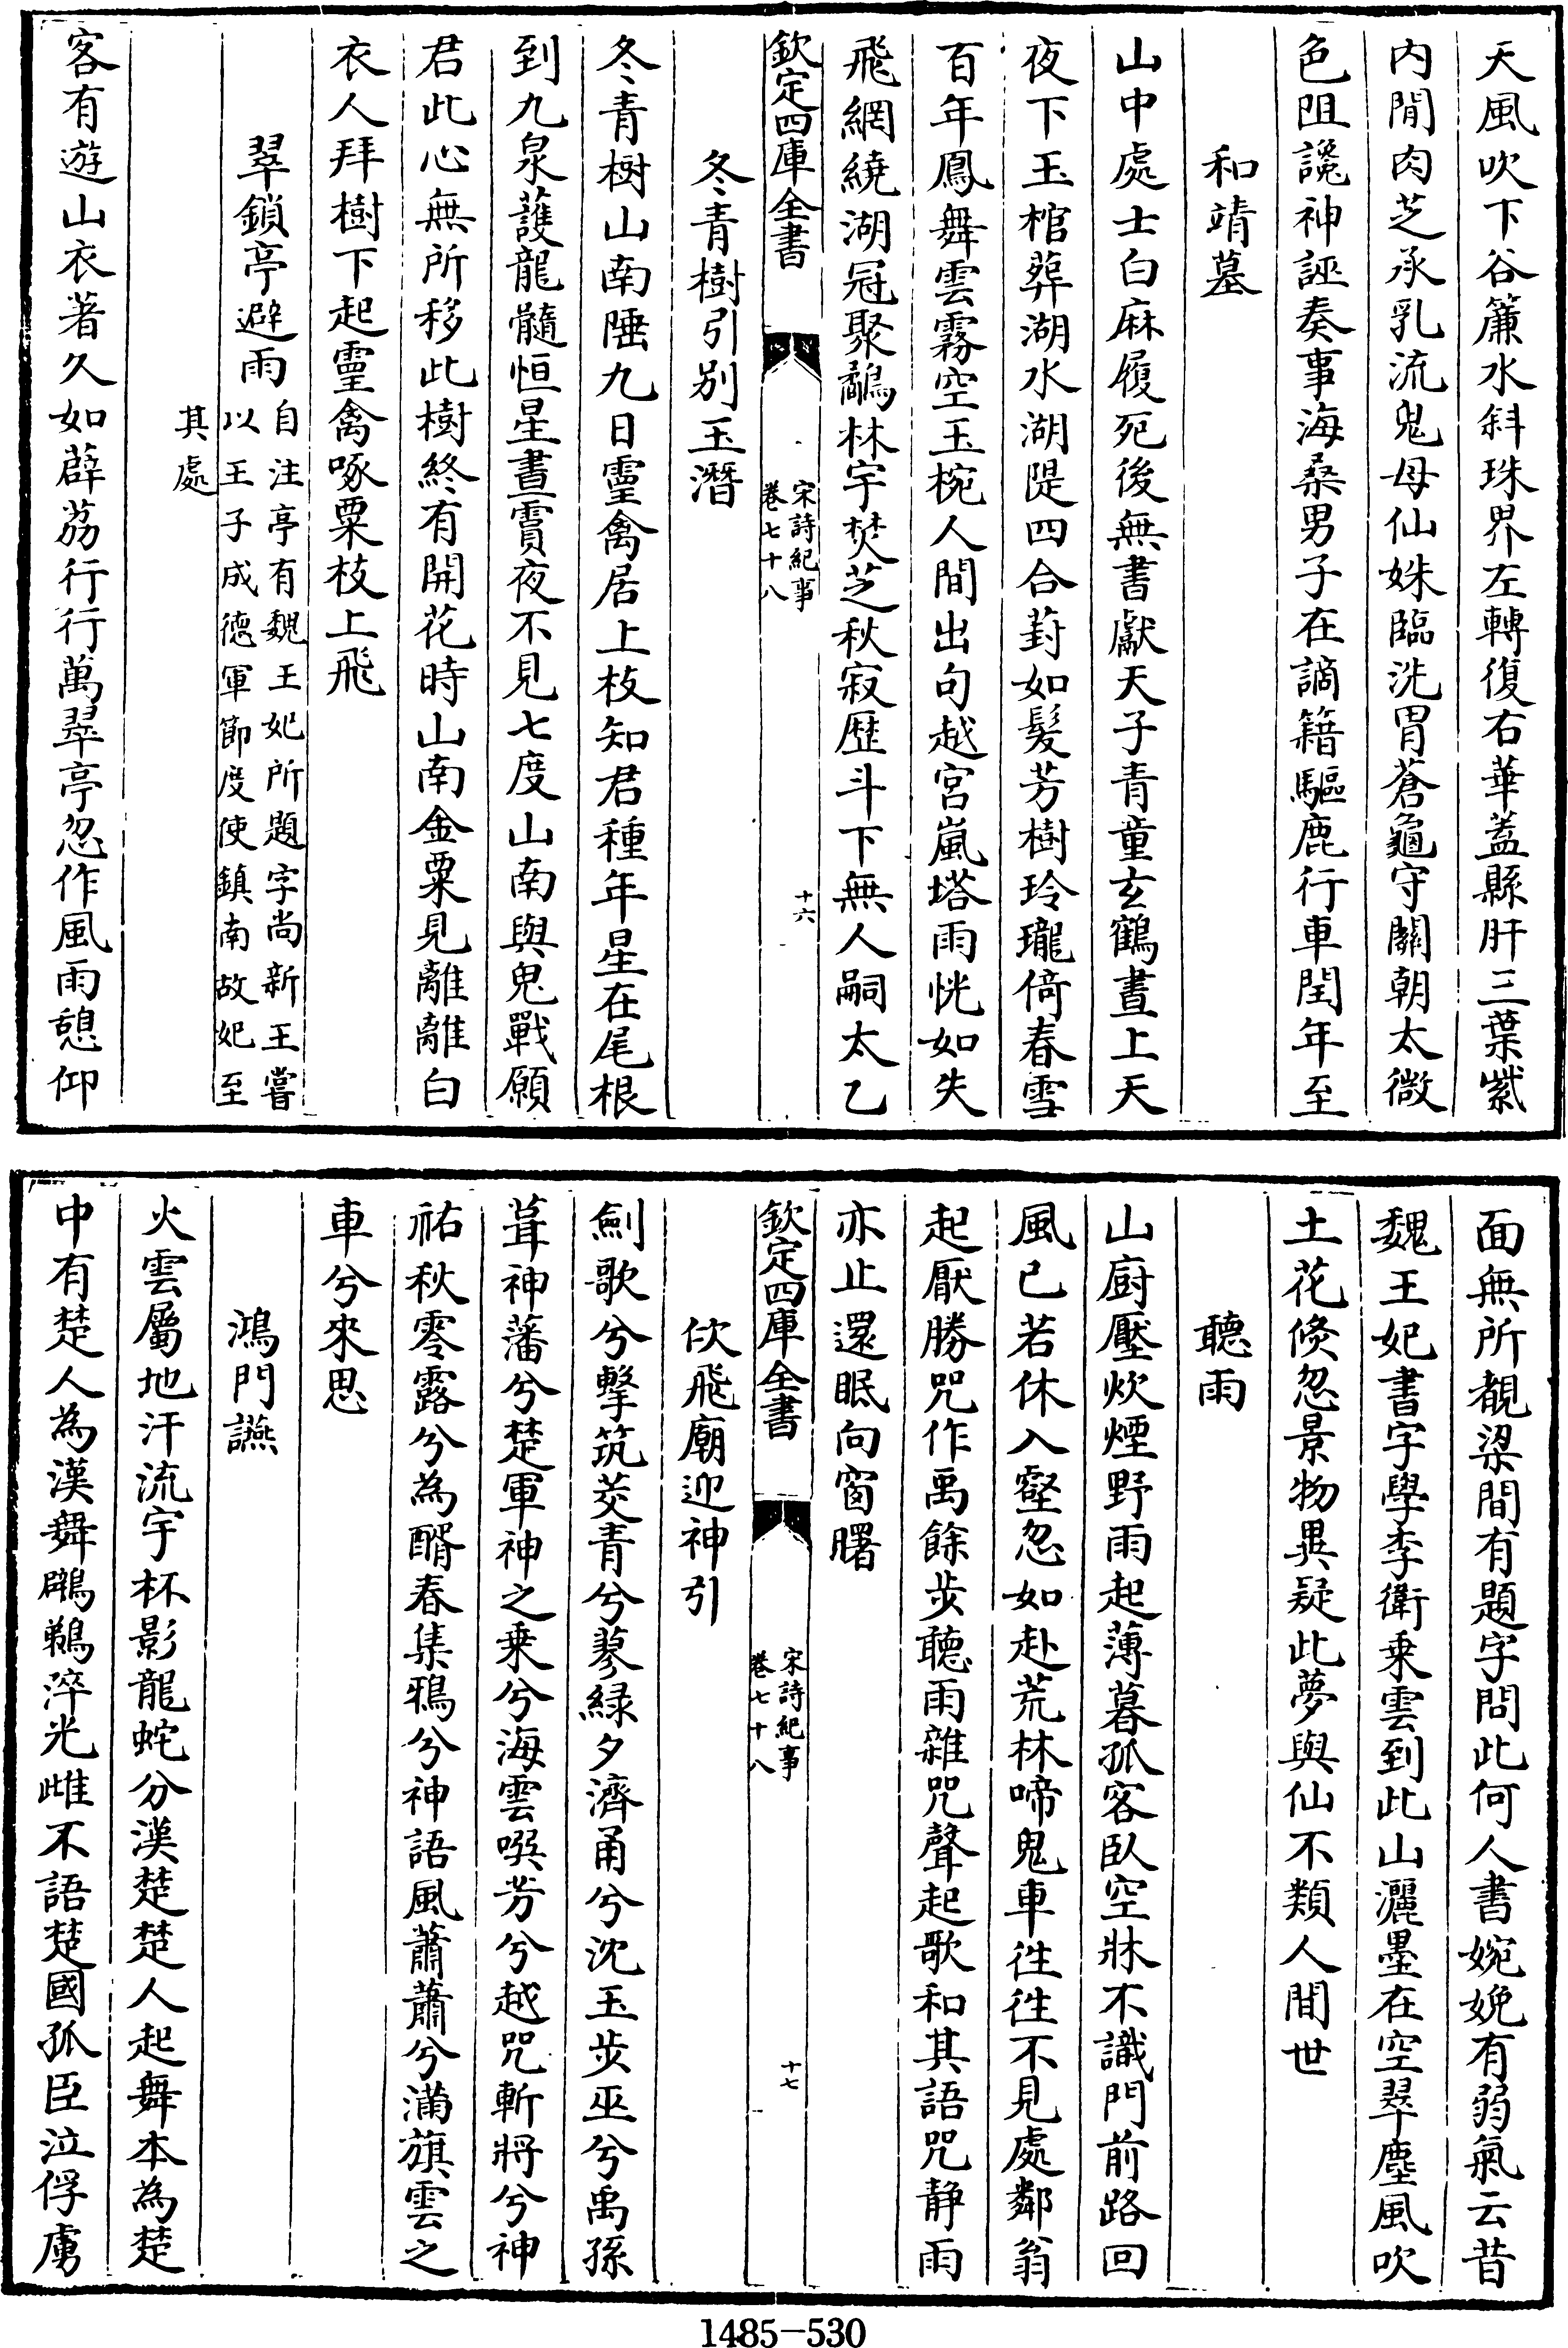 天風吹下谷簾水斜珠界左轉復右華葢縣肝三葉紫
内間肉芝承乳流鬼母仙姝臨洗胃蒼龜守關朝太微
色阻讒神誣奏事海桑男子在謫籍驅鹿行車閏年至
和靖墓
山中處士白麻履死後無書獻天子青童玄鶴晝上天
夜下玉棺葬湖水湖隄四合葑如髮芳樹玲瓏倚春雪
百年鳳舞雲霧空玉椀人間出句越宮嵐塔雨恍如失
飛網繞湖冠聚鷸林宇焚芝秋寂歷斗下無人嗣太乙
欽定四庫全書
宋詩紀事
卷七十八
十六
冬青樹引别玉潛
冬青樹山南陲九日靈禽居上枝知君種年星在尾根
到九泉護龍髓恒星晝霣夜不見七度山南與鬼戰願
君此心無所移此樹終有開花時山南金粟見離離白
衣人拜樹下起靈禽啄粟枝上飛
翠鎖亭避雨
自注亭有魏王妃所題字尚新王嘗
以王子成德軍節度使鎮南故妃至
其處
客有遊山衣著久如薜荔行行萬翠亭忽作風雨憩仰
面無所覩梁間有題字問此何人書婉娩有弱氣云昔
魏王妃書字學李衛乗雲到此山灑墨在空翠塵風吹
土花倐忽景物異疑此夢與仙不類人間世
聽雨
山廚壓炊煙野雨起薄暮孤客臥空牀不識門前路回
風已若休入壑忽如赴荒林啼鬼車往往不見處鄰翁
起厭勝咒作禹餘步聽雨雜咒聲起歌和其語咒静雨
亦止還眠向窗曙
欽定四庫全書
宋詩紀事
卷七十八
十七
佽飛廟迎神引
劍歌兮擊筑茭青兮蓼緑夕濟甬兮沈玉步巫兮禹孫
葺神藩兮楚軍神之乗兮海雲噀芳兮越咒斬將兮神
祐秋零露兮為醑春集鴉兮神語風蕭蕭兮滿旗雲之
車兮來思
鴻門讌
火雲屬地汗流宇杯影龍蛇分漢楚楚人起舞本為楚
中有楚人為漢舞鸊鵜淬光雌不語楚國孤臣泣俘虜
1485-530